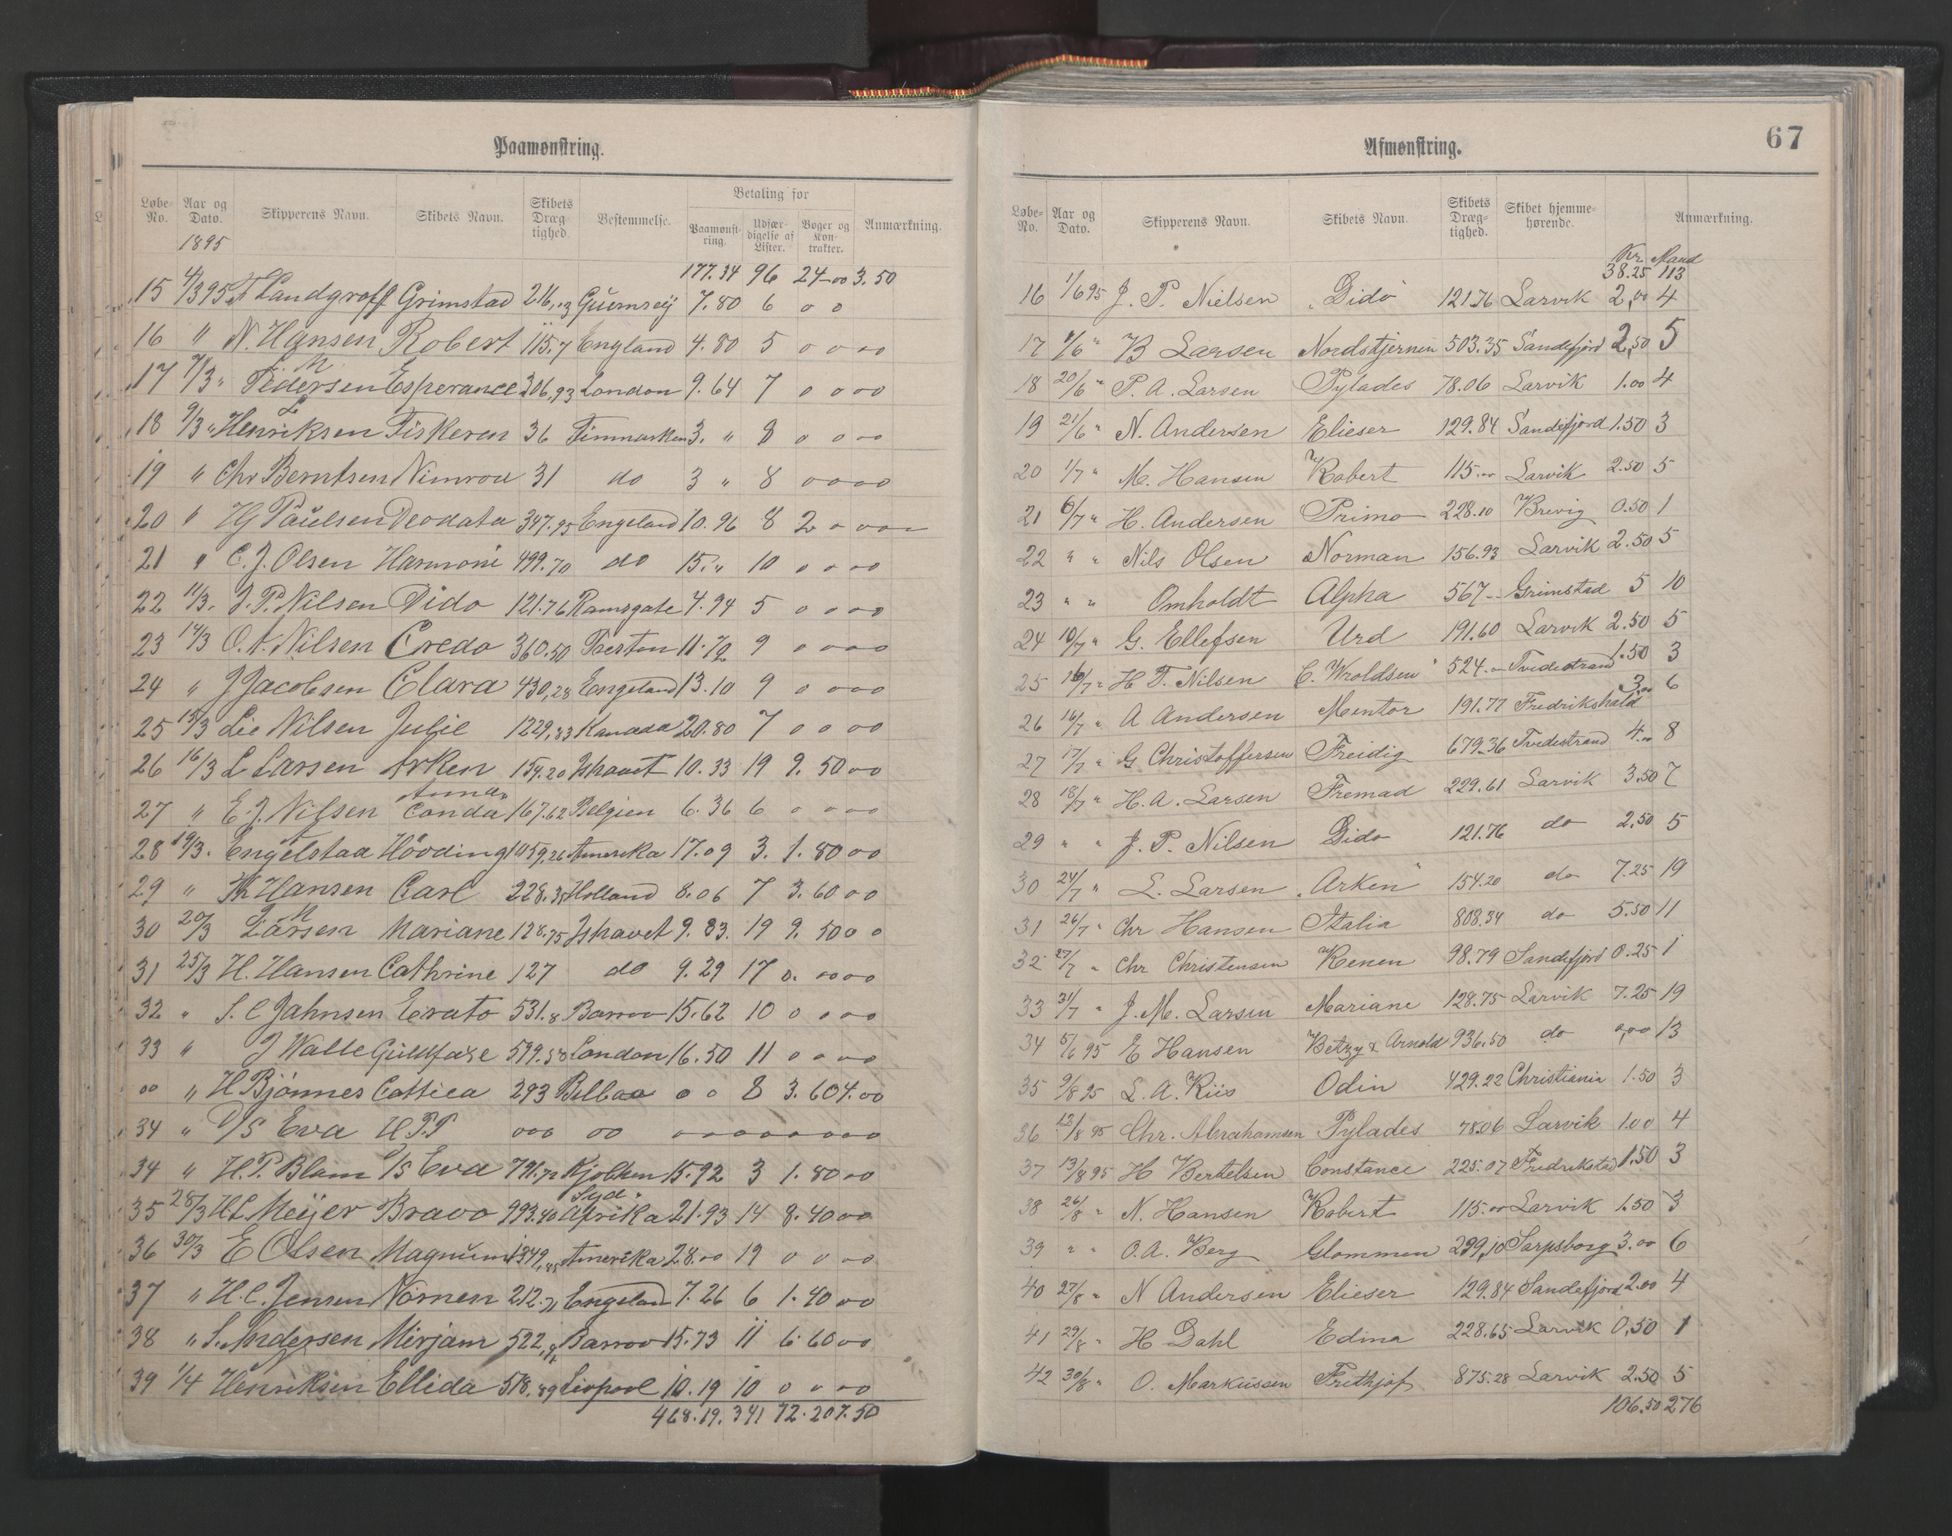 Paamønstring.
Løbe-No. Aar og Dato. Skipperens Navn. Skibets Navn. Skibets Dræg-tighed. Bestemmelse. Betaling for Paamønst-ring. Udfær-digelse af Lister. Bøger og Kon-trakter. Anmærkning.
1895
177.34 96 24-00 3.50
15 4/3 95 Landgroff Grimstad 216,13 Guernseij 7.80 6 o o
16 " N. Hansen Robert 115,7 England 4.80 5 o o o o
17 7/3 " M Pedersen Esperance 306,93 London 9.64 7 o o o o
18 9/3 " L Henriksen Fiskeren 36 Finmarken 3. " 8 o o o o
19 " Chr Berntsen Nimrod 31 do 3 " 8 o o o o
20 " Hj Paulsen Deodata 347.95 Engeland 10.96 8 2 o o o o
21 " C. J. Olsen Harmoni 499.70 do 15. " 10 o o o o
22 11/3. J. P. Nilsen Dido 121.76 Ramsgate 4.94 5 o o o o
23 14/3 O. A. Nilsen Credo 360.50 11.72 9 o o o o
24 " J Jacobsen Clara 430,28 Engeland 13.10 9 o o o o
25 15/3 Lie Nilsen Julie 1229,33 Kanada 20.80 7 o o o o
26 16/3 L Larsen Arken 154.20 Ishavet 10.33 19 9. 50 o o
27 " E. J. Nilsen Anna Conda 167.62 Belgien 6.36 6 o o o o
28 19/3. Engelstad Hövding 1059,26 Amerika 17.09 3. 1. 80 o o
29 " Th Hansen Carl 228.35 Holland 8.06 7 3. 60 o o
30 20/3 J. M Larsen Mariane 128.75 Ishavet 9.83. 19 9. 50 o o
31 25/3 H. Hansen Cathrine 127 do 9.29 17 o. o o o o
32 " S. C Jahnsen Erato 531.8 Barrov 15.62 10 o o o o
33 " J Walle Guldfaxe 599.58 London 16.50 11 o o o o
oo " H Bjönnes Cottica 293 Bilbao o o 8 3. 60 4.00
34 " D/S Eva H P. P ooo oo o o o o o o o o
34 " H. P. Blam D/S Eva 791.72 15.92 3 1. 80 o o
35 28/3 H L Meijer Bravo 993.40 Syd Afrika 21.93 14 8. 40 o o
36 30/3 E Olsen Magnum 1349,85 Amerika 28.00 19 o o o o
37 " H. C. Jensen Nornen 212.71 Engeland 7.26 6 1. 40 o o
38 " S. Andersen Mirjam 522,84 Barrov 15.73 11 6. 60 o o
39 1/4 Henriksen Ellida 518.89 Livpool 10.19 10 o o o o
468.19. 341 72.20 7.50
67
Afmønstring.
Løbe-No. Aar og Dato. Skipperens Navn. Skibets Navn. Skibets Dræg-tighed. Skibet hjemme-hørende. Anmærkning.
Kr. Mand
38.25 113
16 1/6 95 J. P. Nielsen "Dido" 121.76 Larvik 2,00 4
17 7/6 " B Larsen Nordstjernen 503.35 Sandefjord 2,50 5
18 20/6 " P. A. Larsen Pylades 78.06 Larvik 1.00 4
19 21/6 " N. Andersen Elieser 129.84 Sandefjord 1.50 3
20 1/7 " M. Hansen Robert 115.00 Larvik 2.50 5
21 6/7 " H. Andersen Primo 228.10 Brevig 0.50 1
22 " " Nils Olsen Norman 156.93 Larvik 2.50 5
23 " " Omholdt Alpha 567-- Grimstad 5 10
24 10/7 " G. Ellefsen Urd 191.60 Larvik 2.50 5
25 16/7 " H T. Nilsen C. Wroldsen" 524.00 Tvedestrand 1.50 3
26 16/7 " A Andersen Mentor 191.77 Fredrikshald 3,00 6
27 17/7 " G Christoffersen Freidig 679.36 Tvedestrand 4.00 8
28 18/7 " H. A. Larsen Fremad 229.61 Larvik 3.50 7
29 " " J. P. Nilsen Dido 121.76 do 2,50 5
30 24/7 " L. Larsen "Arken" 154.20 do 7.25 19
31 26/7 " Chr Hansen Italia 808.34 do 5.50 11
32 27/7 " Chr Christensen Kenen 98.79 Sandefjord 0.25 1
33 31/7 " J. M. Larsen Mariane 128.75 Larvik 7.25 19
34 5/6 95 E Hansen Betzy & Arnold 936.50 do 13
35 9/8 95 L. A. Kiis Odin 429.22 Christiania 1.50 3
36 12/8 95 Chr. Abrahamsen Pylades 78.06 Larvik 1.00 4
37 13/8 95 H Bertelsen Constance 225.07 Fredrikstad 1.50 3
38 26/8 " N. Hansen Robert 115.00 Larvik 1.50 3
39 " " O. A. Berg Glommen 299,10 Sarpsborg 3.00 6
40 27/8 " N Andersen Elieser 129.84 Sandefjord 2.00 4
41 29/8 " H Dahl Edina 228.65 Larvik 0,50 1
42 30/8 " O. Markussen Frithjof 875.28 Larvik 2.50 5
106.50 276